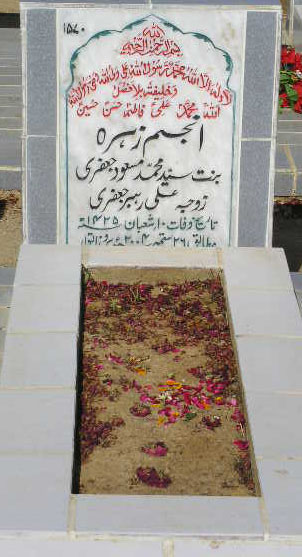 ۱۵۷۰
بسم اللہ الرحمن الرحیم
لا الہ الا اللہ محمد رسول اللہ علی ولی اللہ
وخلیفتہ بلا فصل
اللہ محمد علی فاطمہ حسن حسین
انجم زہرہ
بنت سید محمد مسعود جعفری
زوجہ علی رہبر جعفری
تاریخ وفات ۱۰ شعبان ۱۴۲۵ھ
مطابق ۲۶ ستمبر ۲۰۰۴ء بروز اتوار